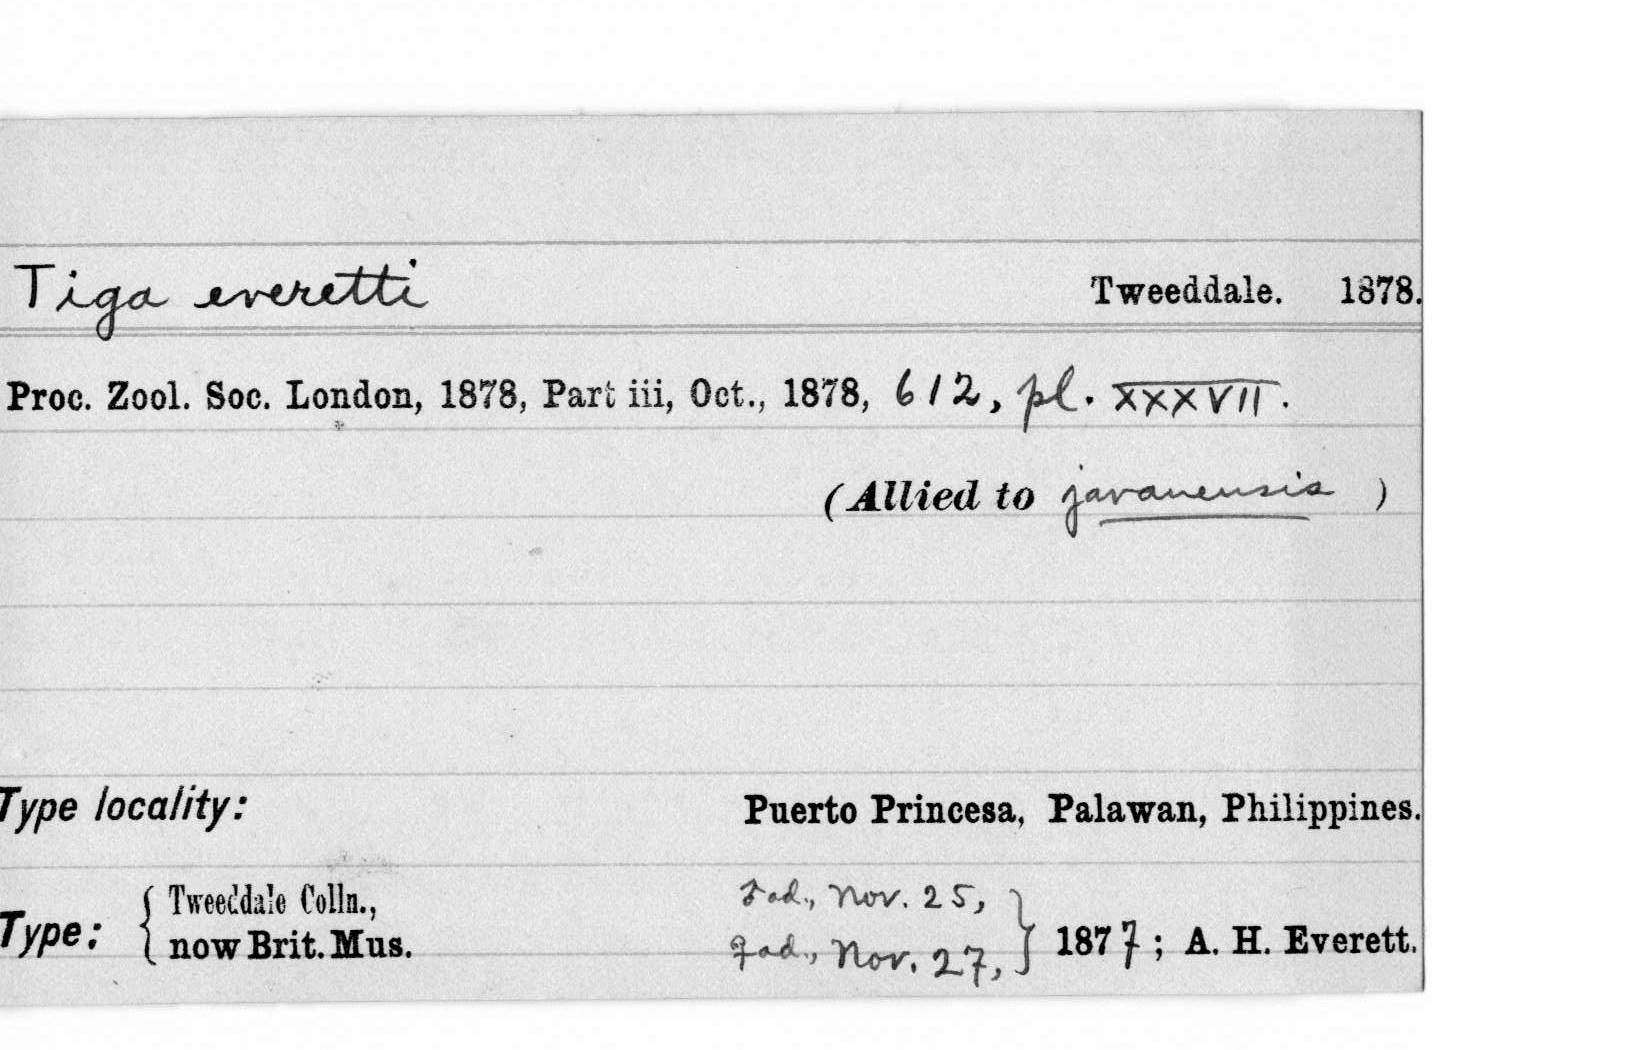 Tiga everetti Tweeddale. 1878.
Proc. Zool. Soc. London, 1878, Part iii, Oct., 1878, 612, pl. XXXVII.
(Allied to javanensis )
Type locality: Puerto Princesa, Palawan, Philippines.
Type: { Tweeddale Colln., now Brit. Mus. ♂ ad., Nov. 25, ♀ ad., Nov. 27, } 1877; A. H. Everett.